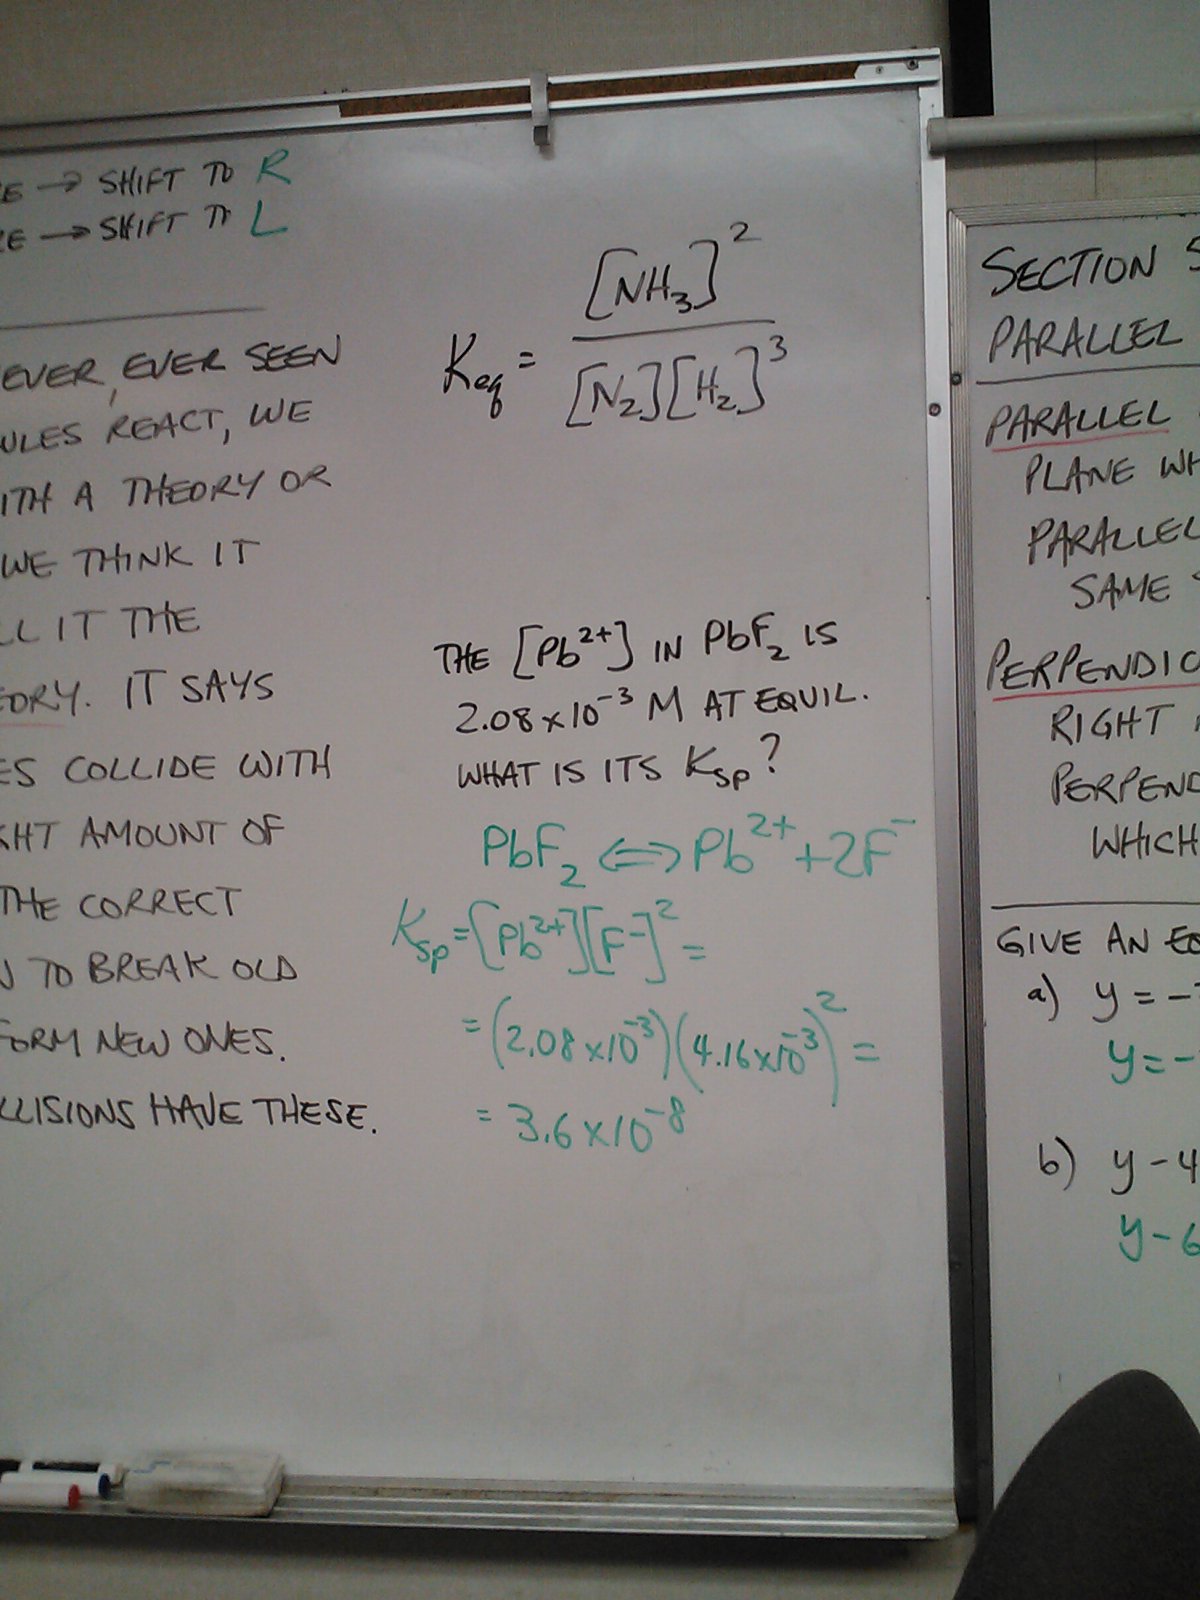 → SHIFT TO R
→ SHIFT TO L
EVER, EVER SEEN
REACT, WE
A THEORY OR
WE THINK IT
IT THE
IT SAYS
COLLIDE WITH
AMOUNT OF
THE CORRECT
TO BREAK OLD
FORM NEW ONES.
HAVE THESE.
Keq = [NH3]^2 / [N2][H2]^3
THE [Pb^2+] IN PbF2 IS
2.08 x 10^-3 M AT EQUIL.
WHAT IS ITS Ksp?
PbF2 ⇔ Pb^2+ + 2F^-
Ksp = [Pb^2+][F^-]^2 =
= (2.08 x 10^-3)(4.16 x 10^-3)^2 =
= 3.6 x 10^-8
SECTION
PARALLEL
PARALLEL
PLANE
PARALLEL
SAME
RIGHT
WHICH
GIVE AN
a) y = -
y = -
b) y - 4
y - 6